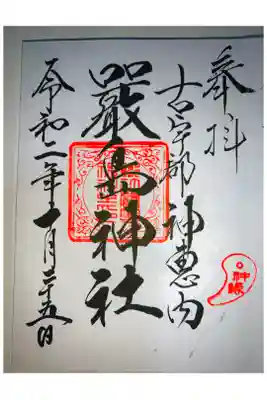 奉拝
古宇郡 神恵内
嚴島神社
令和二年 月二十五日